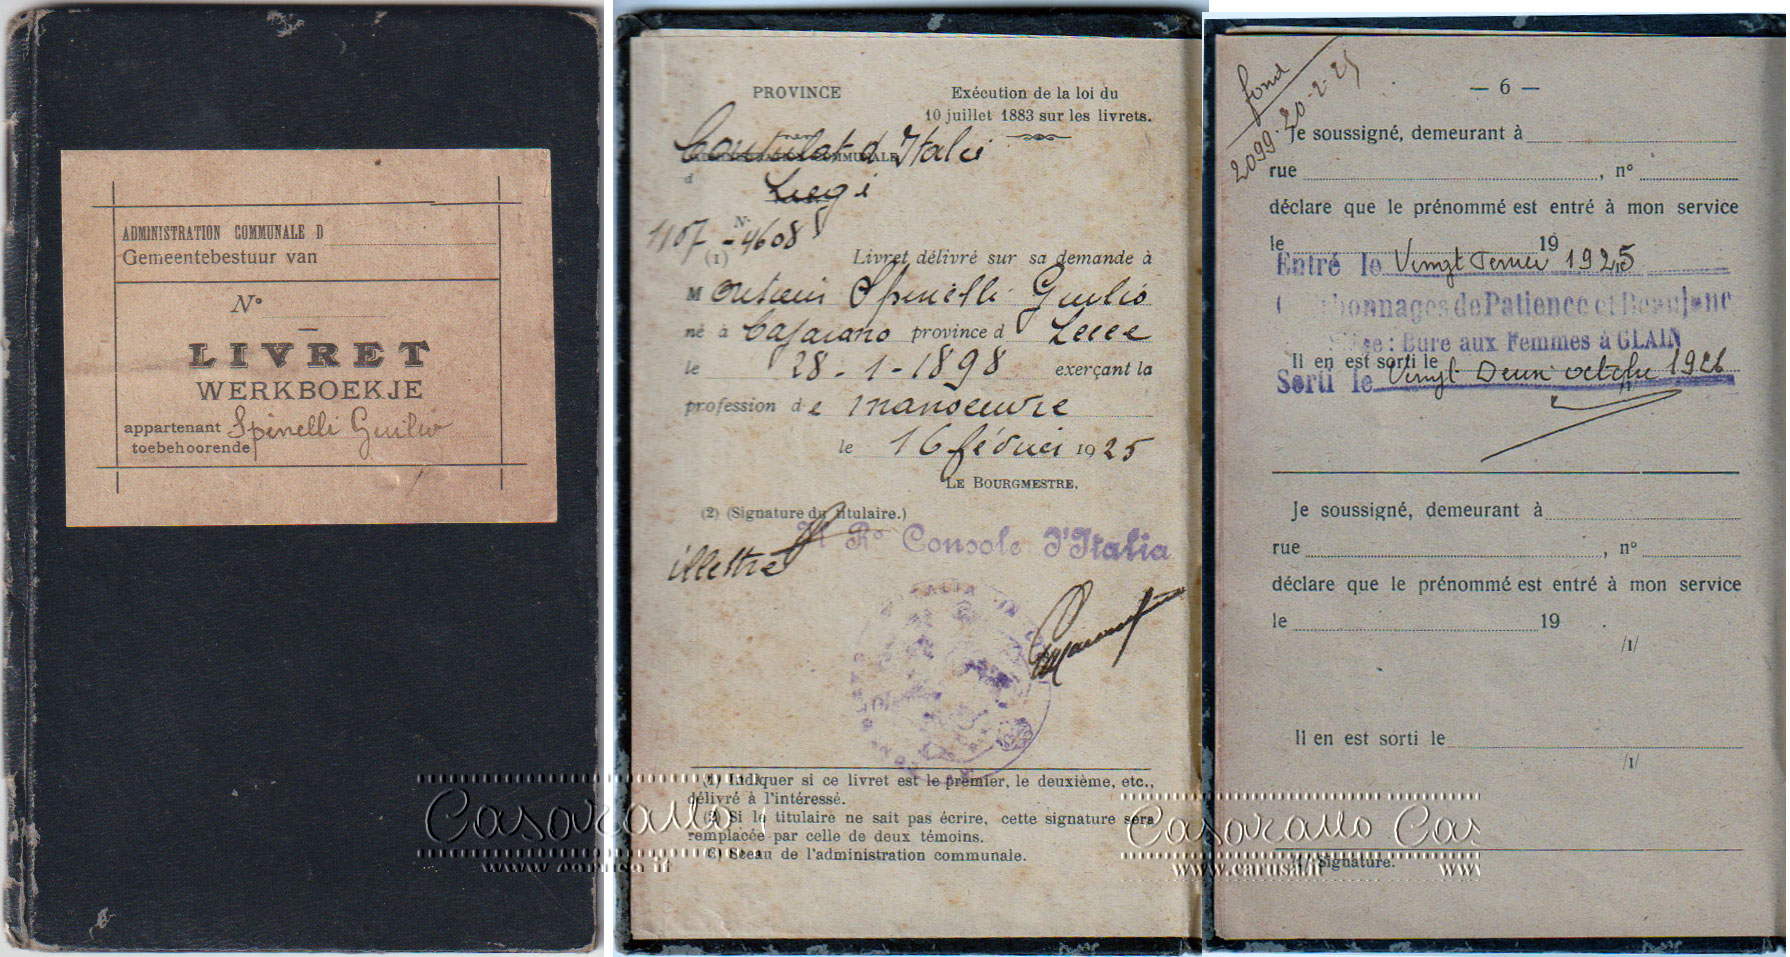 ADMINISTRATION COMMUNALE D
Gemeentebestuur van
N°
LIVRET
WERKBOEKJE
appartenant Spinelli Guilio
toebehoorende
PROVINCE
Exécution de la loi du
10 juillet 1883 sur les livrets.
Consulat d'Italie
d
Liegi
N°
1107 - 4608
(1) Livret délivré sur sa demande à
M Spinelli Guilio
né à Casarano province d Lecce
le 28-1-1898 exerçant la
profession de manoeuvre
le 16 février 1925
LE BOURGMESTRE,
(2) (Signature du titulaire.)
Il Ro Console d'Italia
illettré
(1) Indiquer si ce livret est le premier, le deuxième, etc.,
délivré à l'intéressé.
(2) Si le titulaire ne sait pas écrire, cette signature sera
remplacée par celle de deux témoins.
Sceau de l'administration communale.
Casarano
www.carusa.it
fond
2099-20-2-25
— 6 —
Je soussigné, demeurant à
rue , n°
déclare que le prénommé est entré à mon service
le 19
Entré le Vingt 1925
Charbonnages de Patience et Beaujonc
Siège: Bure aux Femmes à GLAIN
Il en est sorti le
Sorti le Vingt Deux octobre 1926
Je soussigné, demeurant à
rue , n°
déclare que le prénommé est entré à mon service
le 19
/1/
Il en est sorti le
/1/
/1/ Signature.
Casarano Cas
www.carusa.it www